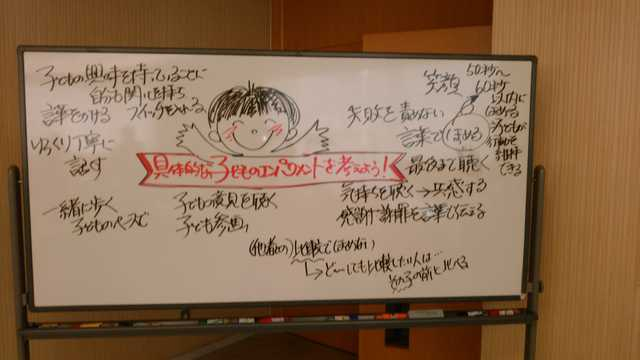 子どもの興味を持っていることに
自分も関心を持ち
謎をかける スイッチを入れる
ゆっくり丁寧に
話す
一緒に歩く
子どものペースで
具体的な子どものエンパワメントを考えよう!
子どもの意見を聴く
子ども参画
笑顔
失敗を責めない
言葉でほめる
50秒~
60秒
以内に
ほめる
子どもが
行動を
維持
できる
最后まで聴く
気持ちを聴く→共感する
感謝・謝罪を言葉で伝える
(他者との)比較でほめない
↳ど~しても比較したい人は…
その子の前と比べる